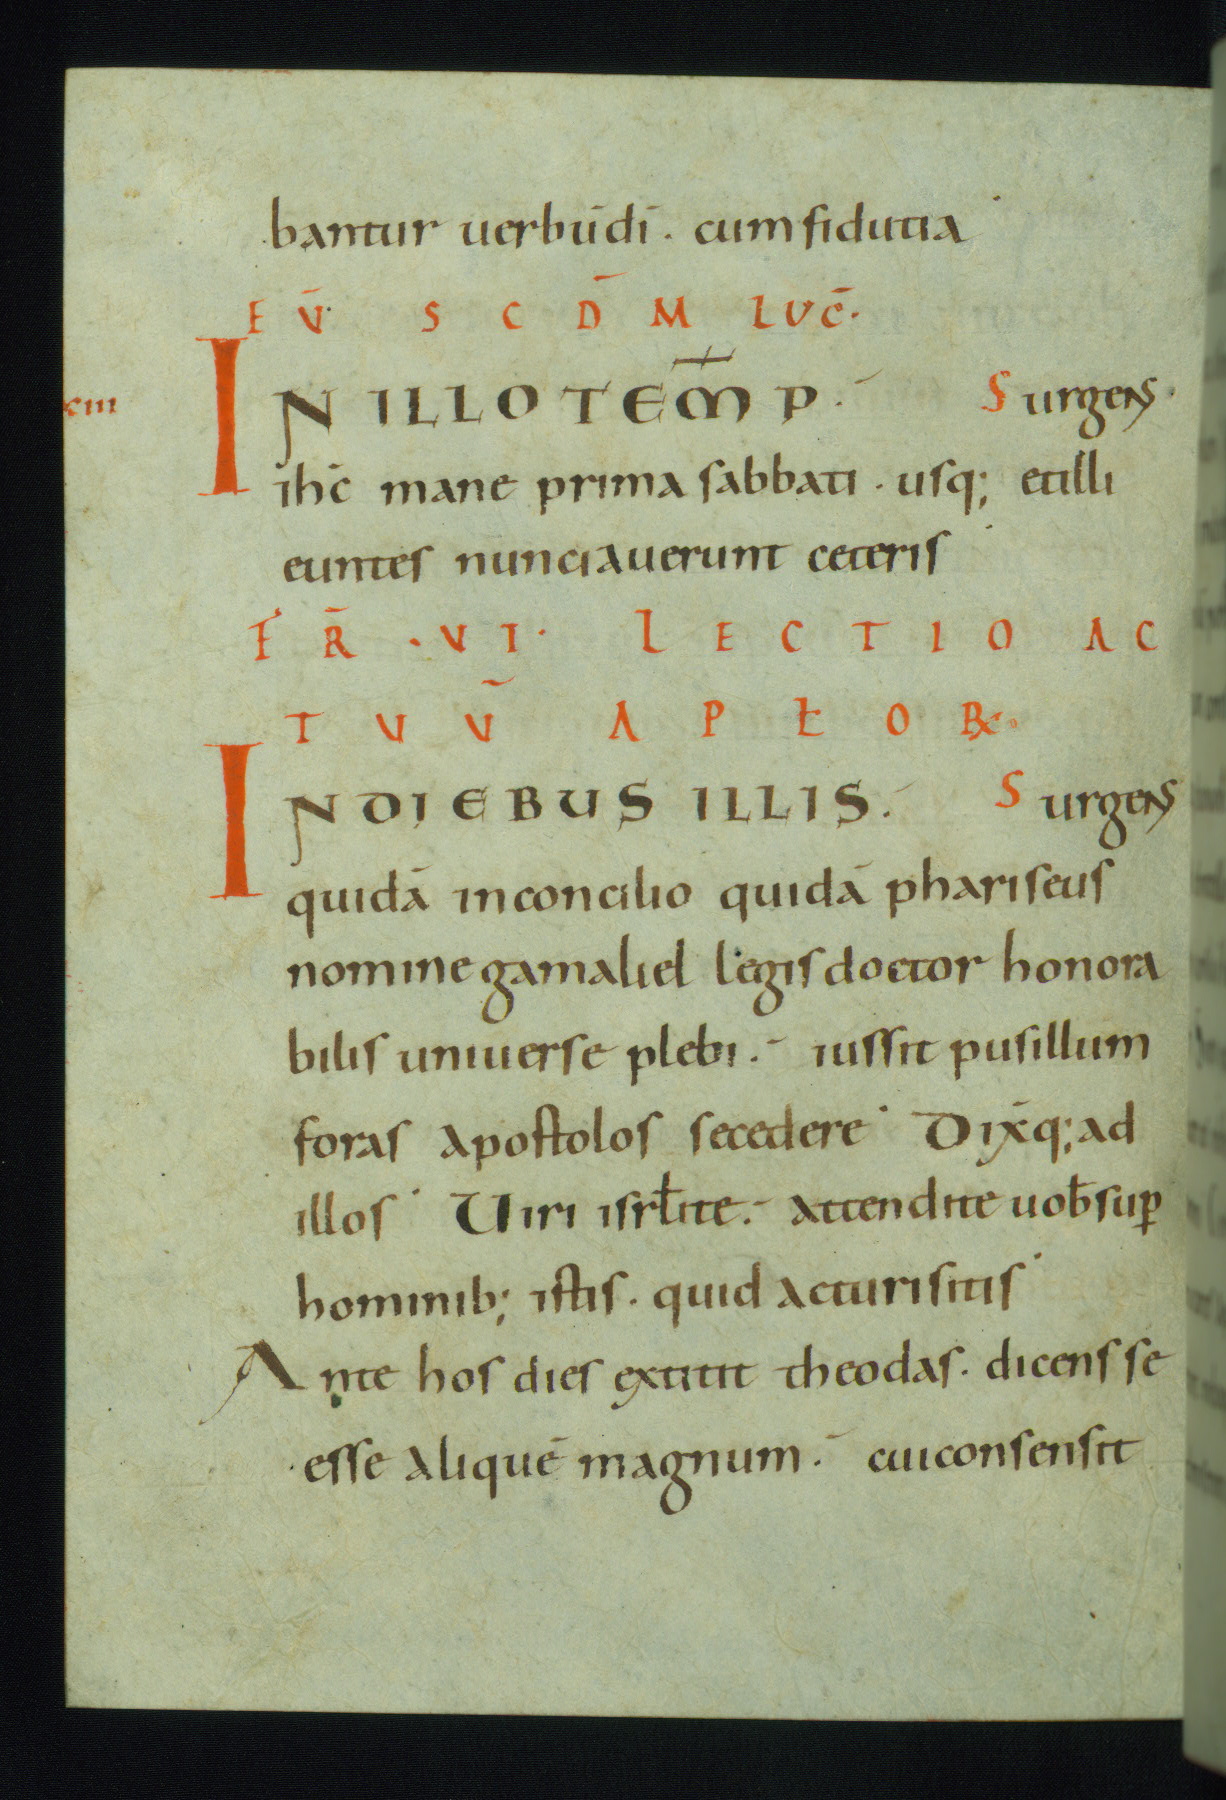 bantur uerbū dī. cum fiducia
EŪ SCD̄M LUC̄.
xciii
IN ILLO TEM̄P. Surgens
ihc̄ mane prima sabbati. usq; et illi
euntes nunciauerunt ceteris
FR̄. VI. LECTIO AC
TUŪ APŁOꝜ.
IN DIEBUS ILLIS. Surgens
quidā in concilio quidā phariseus
nomine gamaliel legis doctor honora
bilis uniuerse plebi. iussit pusillum
foras apostolos secedere Dix̄q; ad
illos Uiri isrƚite. attendite uob̄ suꝑ
hominib; istis. quid acturi sitis
Ante hos dies extitit theodas. dicens se
esse aliquē magnum. cui consensit